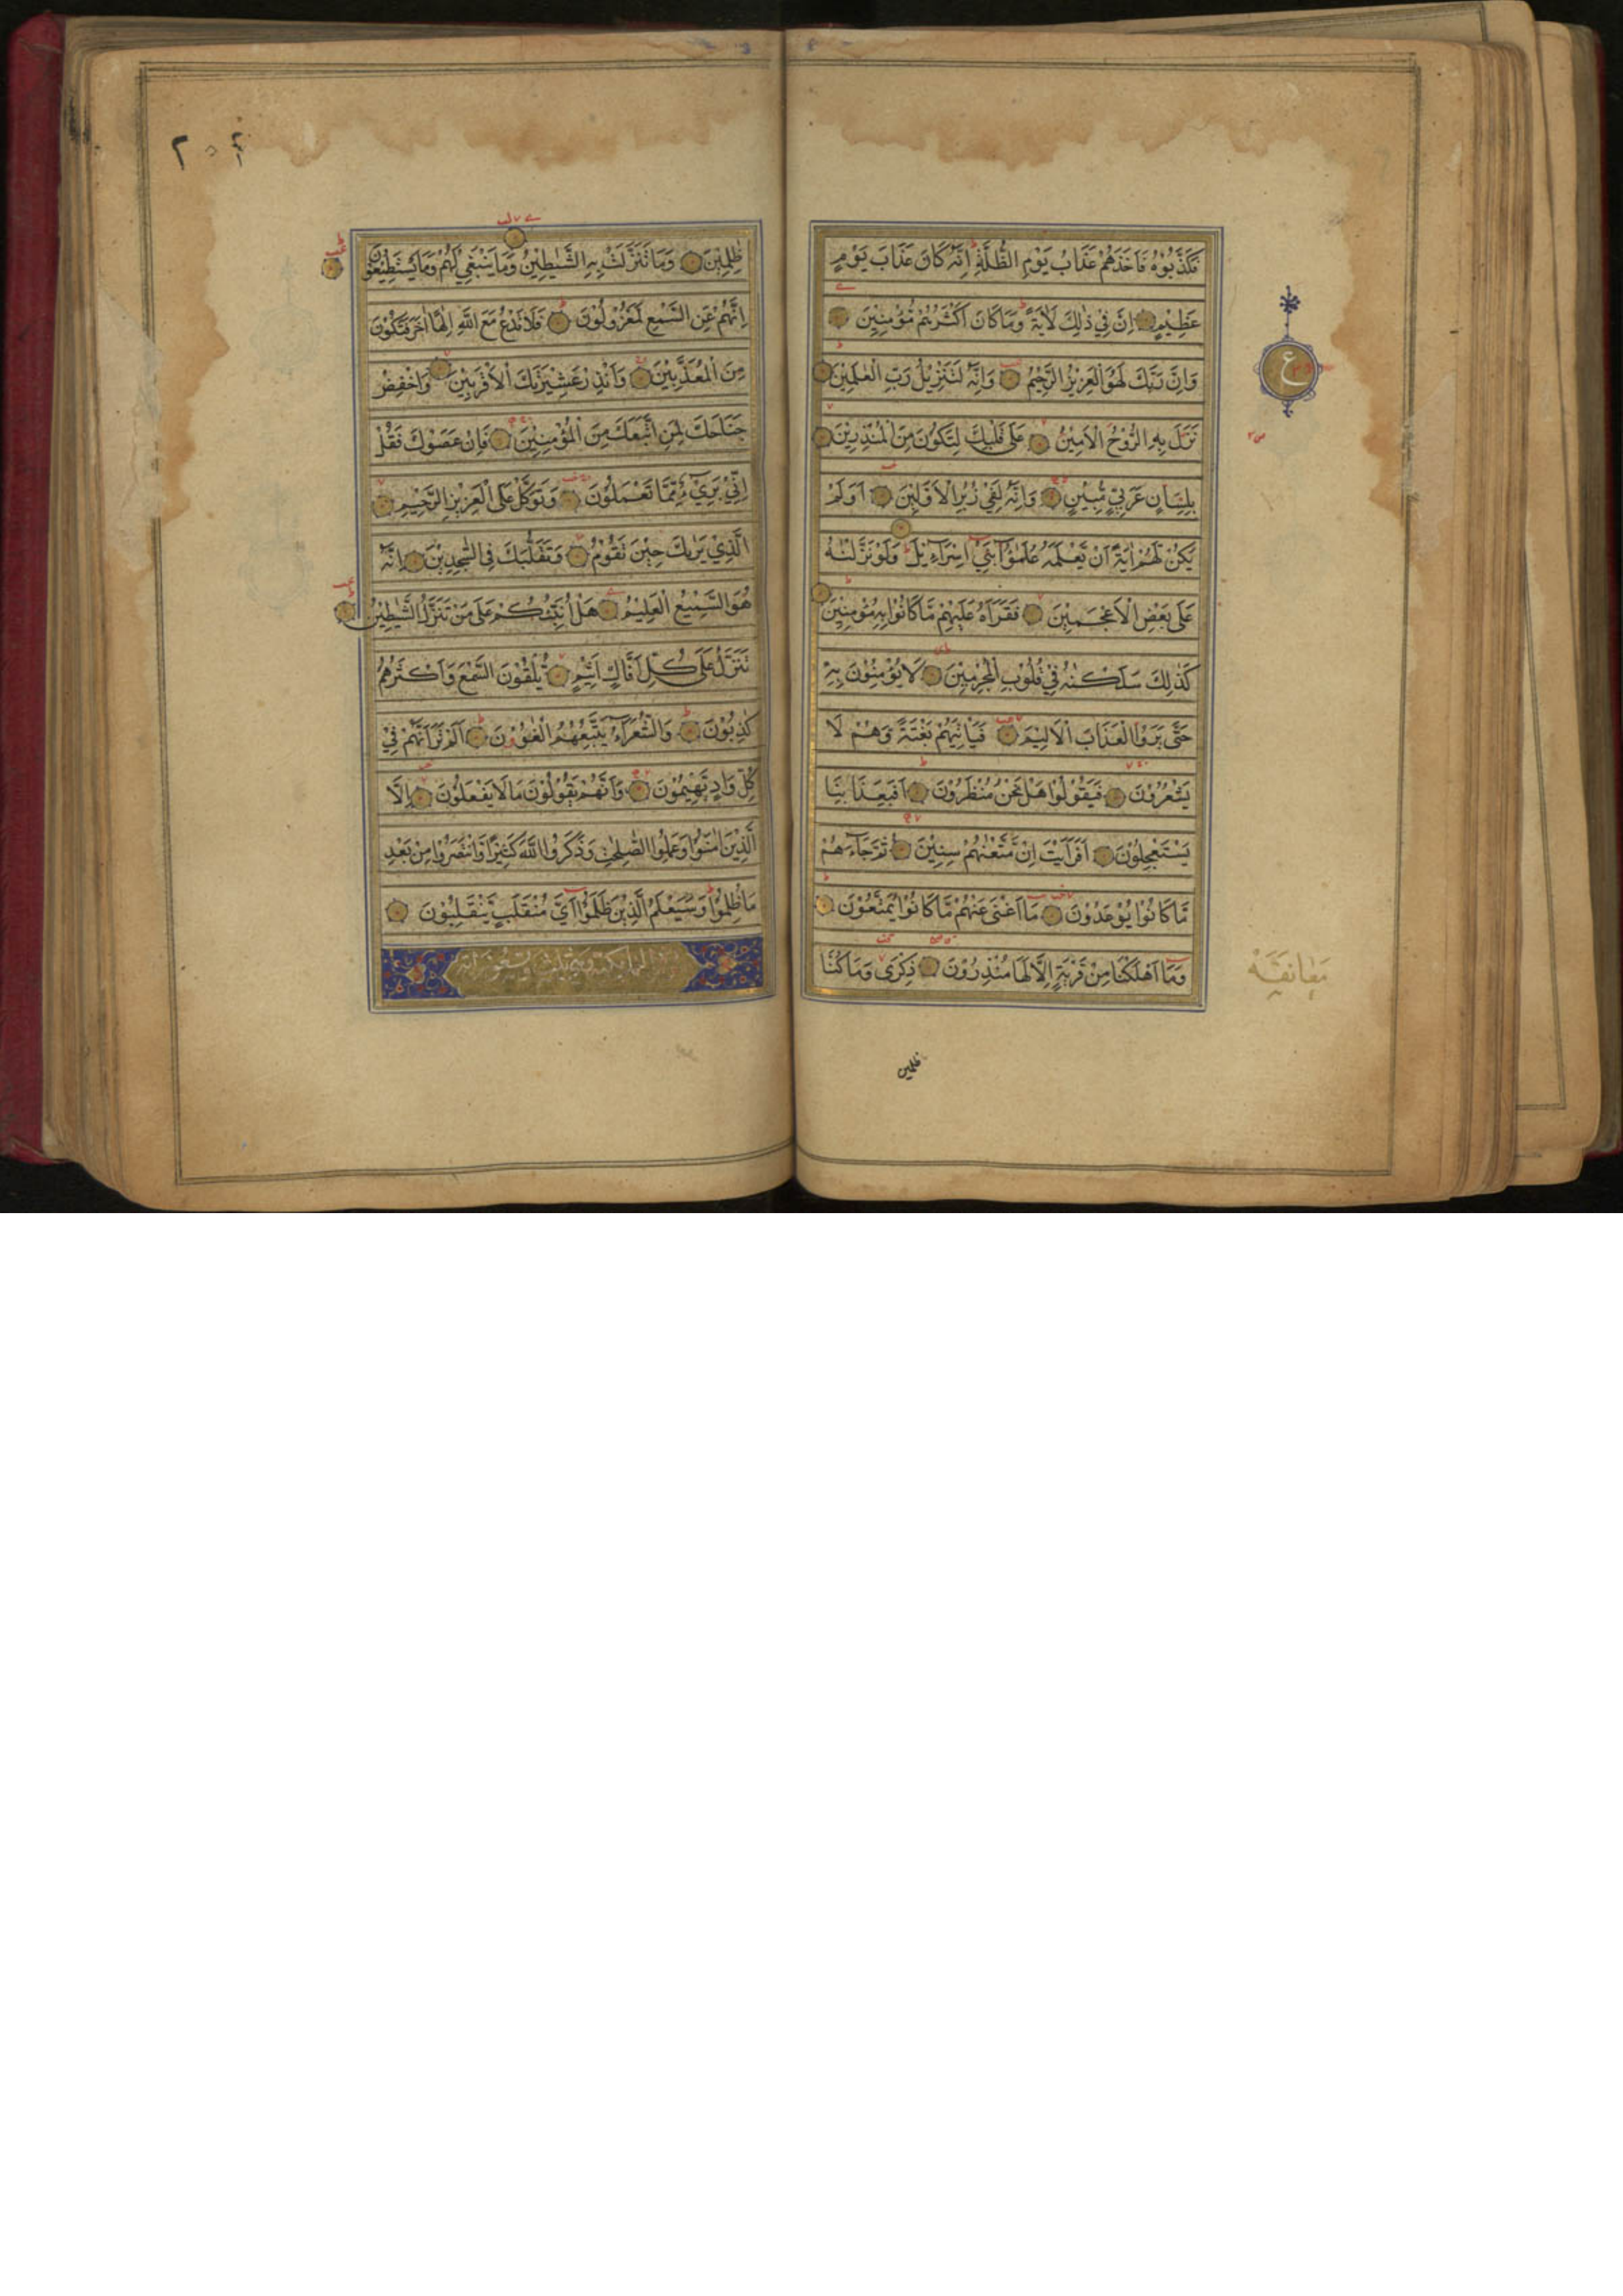 فَكَذَّبُوْهُ فَاَخَذَهُمْ عَذَابُ يَوْمِ الظُّلَّةِ اِنَّهٗ كَانَ عَذَابَ يَوْمٍ
عَظِيْمٍ اِنَّ فِيْ ذٰلِكَ لَاٰيَةً وَمَا كَانَ اَكْثَرُهُمْ مُّؤْمِنِيْنَ
وَاِنَّ رَبَّكَ لَهُوَ الْعَزِيْزُ الرَّحِيْمُ وَاِنَّهٗ لَتَنْزِيْلُ رَبِّ الْعٰلَمِيْنَ
نَزَلَ بِهِ الرُّوْحُ الْاَمِيْنُ عَلٰى قَلْبِكَ لِتَكُوْنَ مِنَ الْمُنْذِرِيْنَ
بِلِسَانٍ عَرَبِيٍّ مُّبِيْنٍ وَاِنَّهٗ لَفِيْ زُبُرِ الْاَوَّلِيْنَ اَوَلَمْ
يَكُنْ لَهُمْ اٰيَةً اَنْ يَّعْلَمَهٗ عُلَمٰٓؤُا بَنِيْٓ اِسْرَآءِيْلَ وَلَوْ نَزَّلْنٰهُ
عَلٰى بَعْضِ الْاَعْجَمِيْنَ فَقَرَاَهٗ عَلَيْهِمْ مَّا كَانُوْا بِهٖ مُؤْمِنِيْنَ
كَذٰلِكَ سَلَكْنٰهُ فِيْ قُلُوْبِ الْمُجْرِمِيْنَ لَا يُؤْمِنُوْنَ بِهٖ
حَتّٰى يَرَوُا الْعَذَابَ الْاَلِيْمَ فَيَاْتِيَهُمْ بَغْتَةً وَّهُمْ لَا
يَشْعُرُوْنَ فَيَقُوْلُوْا هَلْ نَحْنُ مُنْظَرُوْنَ اَفَبِعَذَابِنَا
يَسْتَعْجِلُوْنَ اَفَرَاَيْتَ اِنْ مَّتَّعْنٰهُمْ سِنِيْنَ ثُمَّ جَآءَهُمْ
مَّا كَانُوْا يُوْعَدُوْنَ مَا اَغْنٰى عَنْهُمْ مَّا كَانُوْا يُمَتَّعُوْنَ
وَمَا اَهْلَكْنَا مِنْ قَرْيَةٍ اِلَّا لَهَا مُنْذِرُوْنَ ذِكْرٰى وَمَا كُنَّا
ع
معانقة
ظلمين
ظٰلِمِيْنَ وَمَا تَنَزَّلَتْ بِهِ الشَّيٰطِيْنُ وَمَا يَنْبَغِيْ لَهُمْ وَمَا يَسْتَطِيْعُوْنَ
اِنَّهُمْ عَنِ السَّمْعِ لَمَعْزُوْلُوْنَ فَلَا تَدْعُ مَعَ اللّٰهِ اِلٰهًا اٰخَرَ فَتَكُوْنَ
مِنَ الْمُعَذَّبِيْنَ وَاَنْذِرْ عَشِيْرَتَكَ الْاَقْرَبِيْنَ وَاخْفِضْ
جَنَاحَكَ لِمَنِ اتَّبَعَكَ مِنَ الْمُؤْمِنِيْنَ فَاِنْ عَصَوْكَ فَقُلْ
اِنِّيْ بَرِيْٓءٌ مِّمَّا تَعْمَلُوْنَ وَتَوَكَّلْ عَلَى الْعَزِيْزِ الرَّحِيْمِ
الَّذِيْ يَرٰىكَ حِيْنَ تَقُوْمُ وَتَقَلُّبَكَ فِي السّٰجِدِيْنَ اِنَّهٗ
هُوَ السَّمِيْعُ الْعَلِيْمُ هَلْ اُنَبِّئُكُمْ عَلٰى مَنْ تَنَزَّلُ الشَّيٰطِيْنُ
تَنَزَّلُ عَلٰى كُلِّ اَفَّاكٍ اَثِيْمٍ يُّلْقُوْنَ السَّمْعَ وَاَكْثَرُهُمْ
كٰذِبُوْنَ وَالشُّعَرَآءُ يَتَّبِعُهُمُ الْغَاوٗنَ اَلَمْ تَرَ اَنَّهُمْ فِيْ
كُلِّ وَادٍ يَّهِيْمُوْنَ وَاَنَّهُمْ يَقُوْلُوْنَ مَا لَا يَفْعَلُوْنَ اِلَّا
الَّذِيْنَ اٰمَنُوْا وَعَمِلُوا الصّٰلِحٰتِ وَذَكَرُوا اللّٰهَ كَثِيْرًا وَّانْتَصَرُوْا مِنْ بَعْدِ
مَا ظُلِمُوْا وَسَيَعْلَمُ الَّذِيْنَ ظَلَمُوْٓا اَيَّ مُنْقَلَبٍ يَّنْقَلِبُوْنَ